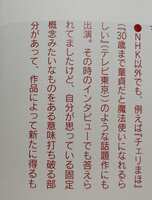 ●NHK以外でも、例えば『チェリまほ
』(『30歳まで童貞だと魔法使いになれるら
しい』(テレビ東京))のような話題作にも
出演。その時のインタビューでも答えら
れてましたけど、自分が思っている固定
概念みたいなものをある意味打ち破る部
分があって、作品によって新たに得るも